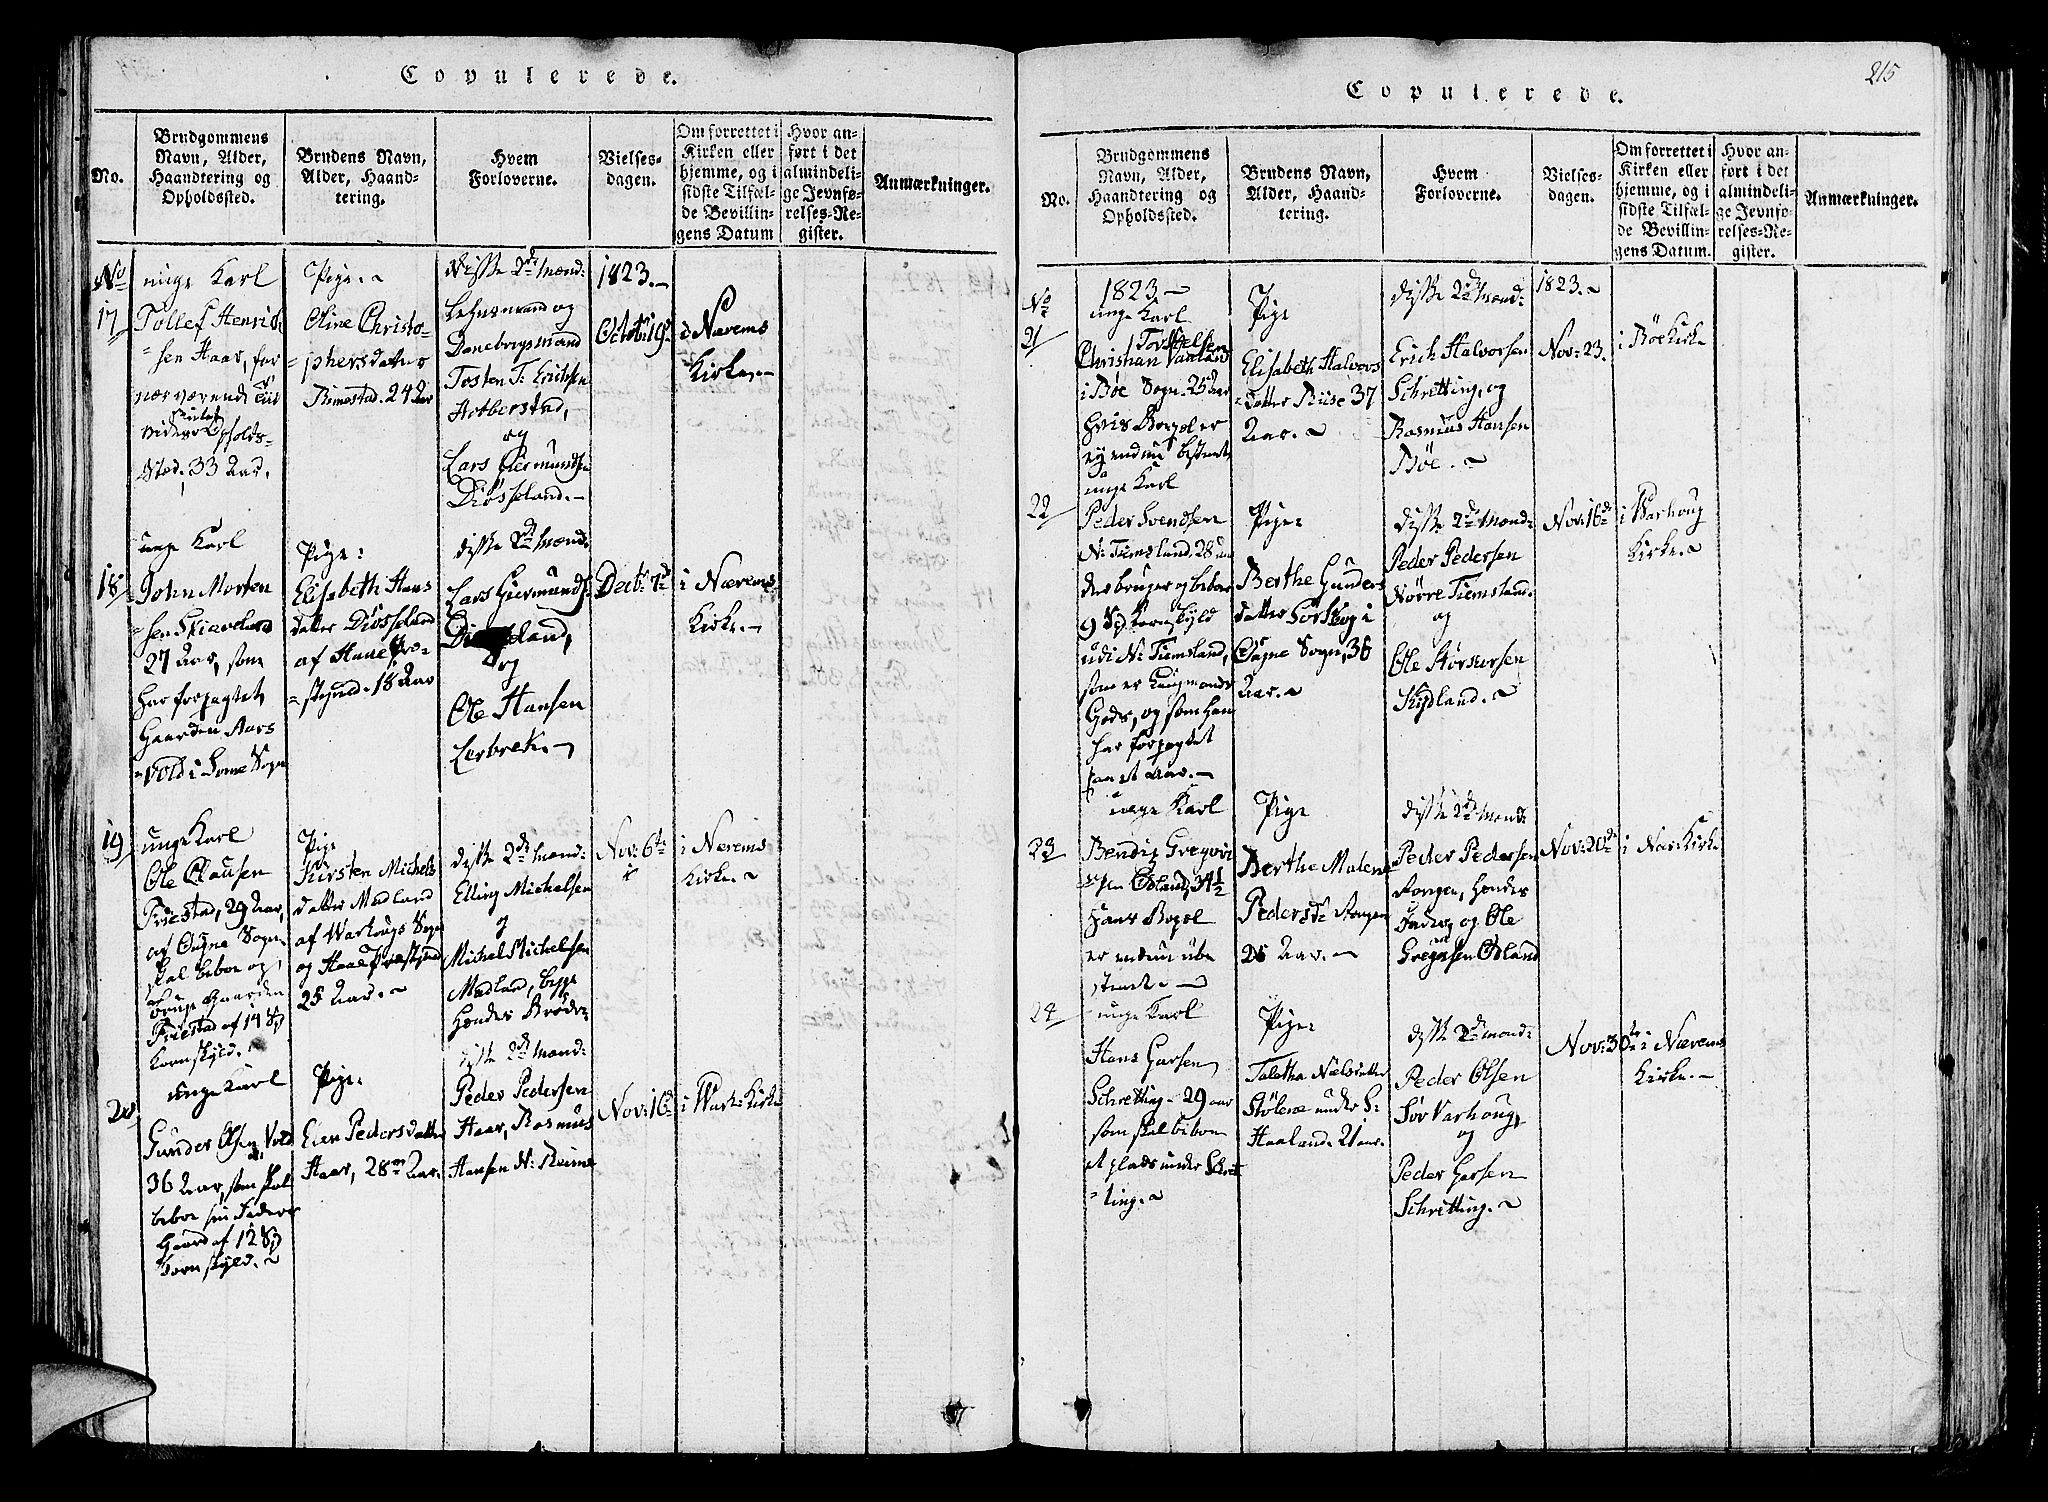 Copulerede.
No.
Brudgommens
Navn, Alder,
Haandtering og
Opholdssted.
Brudens Navn,
Alder, Haand-
tering.
Hvem
Forloverne.
Vielses-
dagen.
Om forrettet i
Kirken eller
hjemme, og i
sidste Tilfæl-
de Bevillin-
gens Datum
Hvor an-
ført i det
almindeli-
ge Jevnfø-
relses-Re-
gister.
Anmærkninger.
No
17
unge Karl
Tollef Henrich
=sen Haar, for
nærværende Tiid
Opholds-
Sted. 33 Aar.
Pige.
Oline Christo-
=phersdatter
Rimestad. 24 Aar
disse 2de Mænd:
Lehnsmand og
Danebrogsmand
Tosten T. Erichsen
Hotberstad,
og
Lars Giermundsen
Diösseland.
1823.
Octob: 19.
i Nærems
Kirke.
18
unge Karl
John Morten
=sen Skiæveland
27 Aar, som
har forpagtet
Gaarden Aars
=vold i Home Sogn
Pige:
Elisabeth Hans
datter Diösseland
af Haae Præ-
=stegield. 18 Aar
disse 2de Mænd:
Lars Giermunds.
Diösseland,
og
Ole Hansen
Lerbrek.
Decbr. 7de
i Nærems
Kirke.
19
unge Karl
Ole Clausen
Friestad, 29 Aar,
af Ougne Sogn
skal beboe og
bruge Gaarden
Friestad af 14
Kornskyld.
Pige
Kirsten Michels
datter Madland
af Warhougs Sogn
og Haae Præstegield
25 Aar.
disse 2de Mænd:
Elling Michelsen
og
Michel Michelsen
Madland, begge
hendes Brødre.
Nov: 6te
i Nærems
Kirke.
20
unge Karl
Gunder Olsen Vold
36 Aar, som skal
beboe sin Faders
Gaard af 12
Kornskyld.
Pige:
Elen Pedersdatter
Haar, 28 Aar.
disse 2de Mænd:
Peder Pedersen
Haar, Rasmus
Hansen N: Reime
Nov: 16de
i Warh: Kirke
Copulerede.
215
No.
Brudgommens
Navn, Alder,
Haandtering og
Opholdssted.
Brudens Navn,
Alder, Haand-
tering.
Hvem
Forloverne.
Vielses-
dagen.
Om forrettet i
Kirken eller
hjemme, og i
sidste Tilfæl-
de Bevillin-
gens Datum.
Hvor an-
ført i det
almindeli-
ge Jevnfø-
relses-Re-
gister.
Anmærkninger.
No
21
1823
unge Karl
Torkelsen
Christian Vanland
i Böe Sogn. 25 Aar
hvis Bopæl er
ey endnu bestemt,
Pige
Elisabeth Halvors
=datter Riise 37
Aar.
disse 2de Mænd:
Erich Halvorsen
Schretting, og
Rasmus Hansen
Böe.
1823.
Nov: 23.
i Böe Kirke
22
unge Karl
Peder Svendsen
N: Tiemsland, 28 aar
der bruger og beboer
9 Kornskyld
udi N: Tiemsland,
som er Kiøbmands
Gods, og som han
har forpagtet
paa et Aar.
Pige:
Berthe Gunders
datter Sörskog i
Ougne Sogn, 36
Aar.
disse 2de Mænd:
Peder Pedersen
Nörre Tiemsland
og
Ole Störkersen
Kydland.
Nov: 16de
i Warhoug
Kirke.
23
unge Karl
Bendix Gregori
=usen Ödland, 34½
hans Bopæl
er endnu ube
stemt.
Pige
Berthe Malene
Pedersdr Rongen
25 Aar.
disse 2de Mænd:
Peder Pedersen
Rongen, hendes
Fader, og Ole
Gregersen Ödland
Nov: 20de
i Nær Kirke
24
unge Karl
Hans Garsen
Schretting 29 aar
som skal beboe
et plads under Schret
=ting.
Pige:
Taletha Nielsdatter
Stölene under S:
Haaland. 21 aar.
disse 2de Mænd:
Peder Olsen
Sör Varhoug,
og
Peder Garsen
Schretting.
Nov: 30te
i Nærems
Kirke.